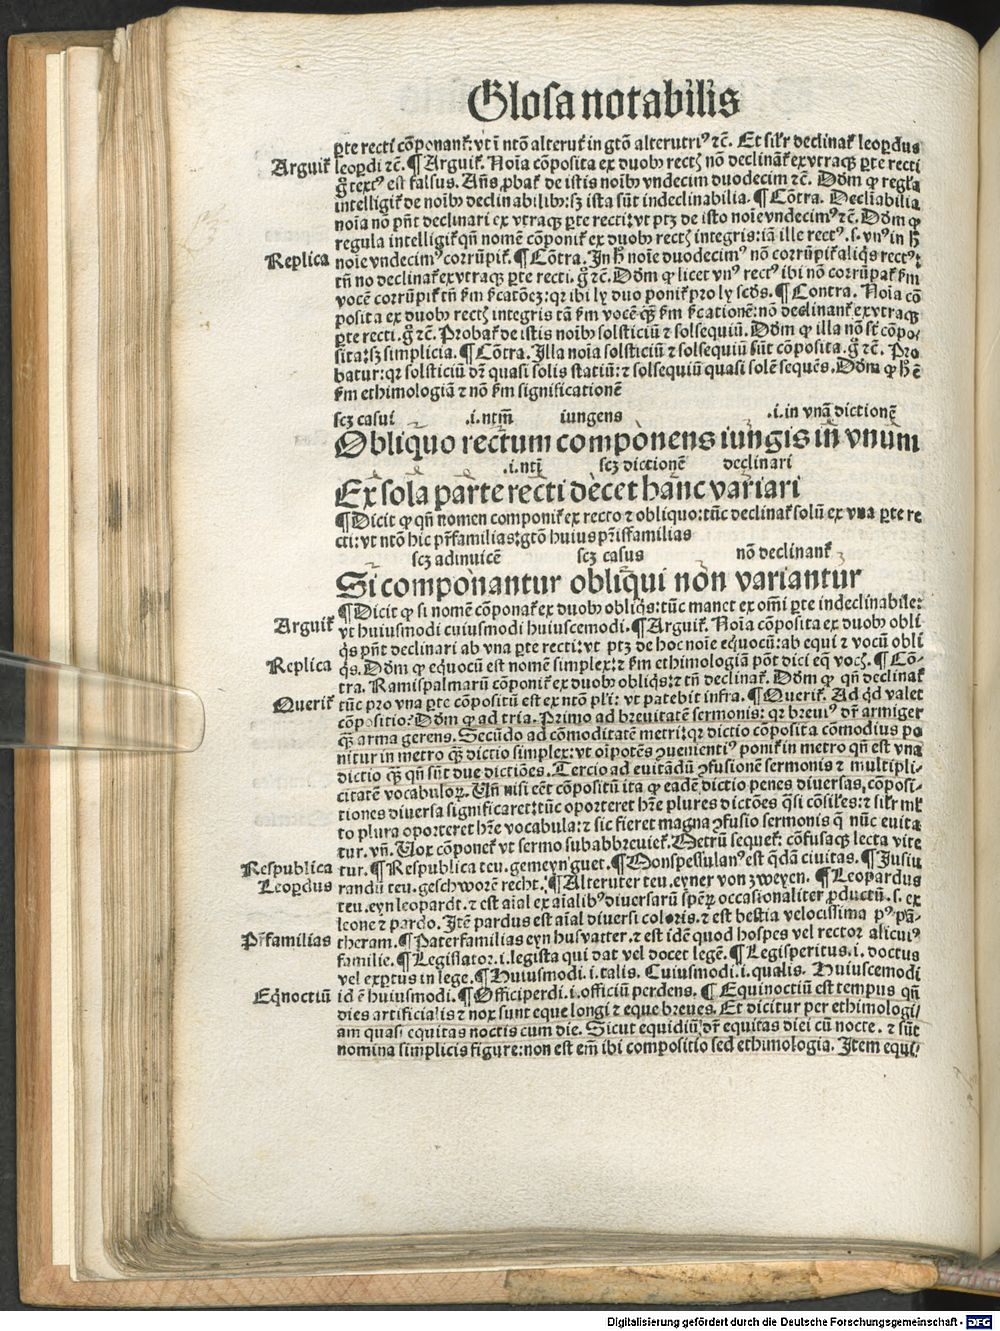 Glosa notabilis
ꝑte recti cōponant᷑: vt ī ntō alteruter in gtō alterutriꝰ ⁊c̄. Et sil᷑r declinat᷑ leoꝑdus
Arguit᷑ leoꝑdi ⁊c̄. ¶ Arguit᷑. Noīa cōposita ex duobꝫ rect̄ꝫ nō declinant᷑ ex vtraqꝫ ꝑte recti
gͦ textꝰ est falsus. Añs ꝓbat᷑ de istis noībꝫ vndecim duodecim ⁊c̄. Dōm ꝙ regl̄a
intelligit᷑ de noībꝫ declinabilibꝫ: sꝫ ista sūt indeclinabilia. ¶ Cōtra. Declinabilia
noīa nō pn̄t declinari ex vtraqꝫ ꝑte recti: vt ptꝫ de isto noīe vndecimꝰ ⁊c̄. Dōm ꝙ
regula intelligit᷑ qn̄ nomē cōponit᷑ ex duobꝫ rect̄ꝫ integris: iā ille rectꝰ .s. vnꝰ in h̄
Replica noīe vndecimꝰ corrūpit᷑. ¶ Cōtra. In h̄ noīe duodecimꝰ nō corrūpit᷑ aliq̄s rectꝰ:
tn̄ no declinat᷑ ex vtraqꝫ ꝑte recti. gͦ ⁊c̄. Dōm ꝙ licet vnꝰ rectꝰ ibi nō corrūpat᷑ s̄m
vocē corrūpit᷑ tn̄ s̄m sc̄atōeꝫ: qꝛ ibi ly duo ponit᷑ pro ly sc̄ds. ¶ Contra. Noīa cō
posita ex duobꝫ rect̄ꝫ integris tā s̄m vocē qꝫ s̄m sc̄ationē: nō declinant᷑ ex vtraqꝫ
ꝑte recti. gͦ ⁊c̄. Probat᷑ de istis noībꝫ solsticiū ⁊ solsequiū. Dōm ꝙ illa nō st̄ cōpo-
sita: sꝫ simplicia. ¶ Cōtra. Illa noīa solsticiū ⁊ solsequiū sūt cōposita. gͦ ⁊c̄. Pro
batur: qꝛ solsticiū dr̄ quasi solis statiū: ⁊ solsequiū quasi solē sequēs. Dōm ꝙ h̄ ē
s̄m ethimologiā ⁊ nō s̄m significationē
scꝫ casui .i. ntm̄ iungens .i. in vnā dictionē
Obliquo rectum componens iungis in vnum
.i. ntī scꝫ dictionē declinari
Ex sola parte recti decet hanc variari
¶ Dicit ꝙ qn̄ nomen componit᷑ ex recto ⁊ obliquo: tūc declinat᷑ solū ex vna ꝑte re
cti: vt ntō hic pr̄familias: gtō huius pr̄isfamilias
scꝫ adinuicē scꝫ casus nō declinant᷑
Si componantur obliqui non variantur
¶ Dicit ꝙ si nomē cōponat᷑ ex duobꝫ obliq̄s: tūc manet ex om̄i ꝑte indeclinabile:
Arguit᷑ vt huiusmodi cuiusmodi huiuscemodi. ¶ Arguit᷑. Noīa cōposita ex duobꝫ obli
q̄s pn̄t declinari ab vna ꝑte recti: vt ptꝫ de hoc noīe eq̄uocū: ab equi ⁊ vocū obli
Replica q̄s. Dōm ꝙ equocū est nomē simplex: ⁊ s̄m ethimologiā pōt dici eq̄ vocꝫ. ¶ Cō-
tra. Ramispalmarū cōponit᷑ ex duobꝫ obliq̄s: ⁊ tn̄ declinat᷑. Dōm ꝙ qn̄ declinat᷑
Querit᷑ tūc pro vna ꝑte cōpositū est ex ntō pl̄i: vt patebit infra. ¶ Querit᷑. Ad qd̄ valet
cōpositio? Dōm ꝙ ad tria. Primo ad breuitatē sermonis: qꝛ breuiꝰ dr̄ armiger
qꝫ arma gerens. Secūdo ad cōmoditatē metri: qꝛ dictio cōposita cōmodius po
nitur in metro qꝫ dictio simplex: vt oīpotēs ꝯuenientiꝰ ponit᷑ in metro qn̄ est vna
dictio qꝫ qn̄ sūt due dictiōes. Tercio ad euitādū ꝯfusionē sermonis ⁊ multipli-
citatē vocabuloꝝ. Vn̄ nisi eēt cōpositū ita ꝙ eadē dictio penes diuersas cōposi-
tiones diuersa significaret: tūc oporteret h̄re plures dictōes q̄si cōsil̄es: ⁊ sil᷑r ml̄
to plura oporteret h̄re vocabula: ⁊ sic fieret magna ꝯfusio sermonis q̄ nūc euita
tur. vn̄. Vox cōponet᷑ vt sermo subabbreuiet᷑. Metrū sequet᷑: cōfusaqꝫ lecta vite
Respublica tur. ¶ Respublica teu. gemeyn guet. ¶ Monspessulanꝰ est q̄dā ciuitas. ¶ Jusiu
Leoꝑdus randū teu. geschworē recht. ¶ Alteruter teu. eyner von zweyen. ¶ Leopardus
teu. eyn leopardt. ⁊ est aīal ex aīalibꝰ diuersarū sp̄erꝫ occasionaliter ꝓductū. s. ex
leone ⁊ pardo. Itē pardus est aīal diuersi coloris. ⁊ est bestia velocissima pꝰ pā-
Pr̄familias theram. ¶ Paterfamilias eyn husvatter. ⁊ est idē quod hospes vel rector alicuiꝰ
familie. ¶ Legislator .i. legista qui dat vel docet legē. ¶ Legisperitus .i. doctus
vel exꝑtus in lege. ¶ Huiusmodi .i. talis. Cuiusmodi .i. qualis. Huiuscemodi
Eq̄noctiū id ē huiusmodi. ¶ Officiperdi .i. officiū perdens. ¶ Equinoctiū est tempus qn̄
dies artificialis ⁊ nox sunt eque longi ⁊ eque breues. Et dicitur per ethimologi/
am quasi equitas noctis cum die. Sicut equidiū dr̄ equitas diei cū nocte. ⁊ sūt
nomina simplicis figure: non est em̄ ibi compositio sed ethimologia. Item equi/
Digitalisierung gefördert durch die Deutsche Forschungsgemeinschaft - DFG